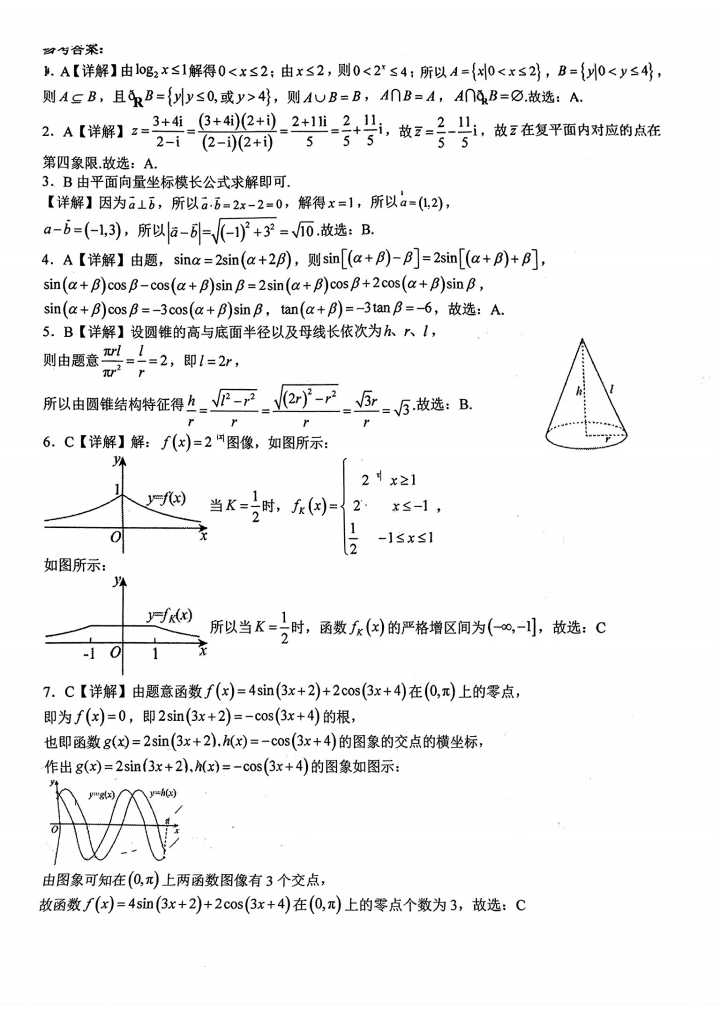 参考答案：
1．A【详解】由log₂ x≤1解得0<x≤2；由x≤2，则0<2ˣ≤4；所以A={x|0<x≤2}，B={y|0<y≤4}，
则A⊆B，且∁_R B={y|y≤0,或y>4}，则A∪B=B，A⋂B=A，A⋂∁_R B=∅.故选：A.
2．A【详解】z=(3+4i)/(2−i)=(3+4i)(2+i)/((2−i)(2+i))=(2+11i)/5=2/5+11/5 i，故z̄=2/5−11/5 i，故z̄在复平面内对应的点在
第四象限.故选：A.
3．B 由平面向量坐标模长公式求解即可.
【详解】因为a⃗⊥b⃗，所以a⃗·b⃗=2x−2=0，解得x=1，所以a⃗=(1,2)，
a−b⃗=(−1,3)，所以|a⃗−b⃗|=√((−1)²+3²)=√10.故选：B.
4．A【详解】由题，sinα=2sin(α+2β)，则sin[(α+β)−β]=2sin[(α+β)+β]，
sin(α+β)cosβ−cos(α+β)sinβ=2sin(α+β)cosβ+2cos(α+β)sinβ，
sin(α+β)cosβ=−3cos(α+β)sinβ，tan(α+β)=−3tanβ=−6，故选：A.
5．B【详解】设圆锥的高与底面半径以及母线长依次为h、r、l，
则由题意πrl/πr²=l/r=2，即l=2r，
所以由圆锥结构特征得h/r=√(l²−r²)/r=√((2r)²−r²)/r=√3r/r=√3.故选：B.
h l r
6．C【详解】解：f(x)=2^(−|x|)图像，如图所示：
y 1 y=f(x) O x
当K=1/2时，f_K(x)={2^(−x) x≥1
2ˣ x≤−1，
1/2 −1≤x≤1
如图所示：
y y=f_K(x) -1 O 1 x
所以当K=1/2时，函数f_K(x)的严格增区间为(−∞,−1]，故选：C
7．C【详解】由题意函数f(x)=4sin(3x+2)+2cos(3x+4)在(0,π)上的零点，
即为f(x)=0，即2sin(3x+2)=−cos(3x+4)的根，
也即函数g(x)=2sin(3x+2)、h(x)=−cos(3x+4)的图象的交点的横坐标，
作出g(x)=2sin(3x+2)、h(x)=−cos(3x+4)的图象如图示：
y y=g(x) y=h(x) O π x
由图象可知在(0,π)上两函数图像有3个交点，
故函数f(x)=4sin(3x+2)+2cos(3x+4)在(0,π)上的零点个数为3，故选：C